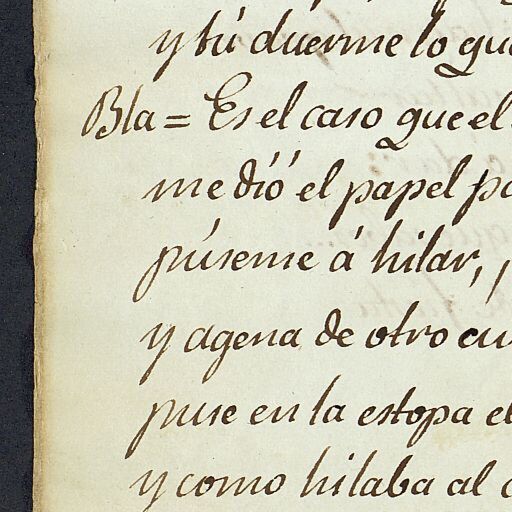 y tú duerme lo que
Bla = Es el caso que el
me dió el papel
púseme á hilar,
y agena de otro
puse en la estopa el
y como hilaba al